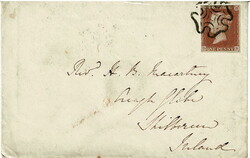 Revd. H. B. Macartney
Creagh Glebe
Skibbereen
Ireland